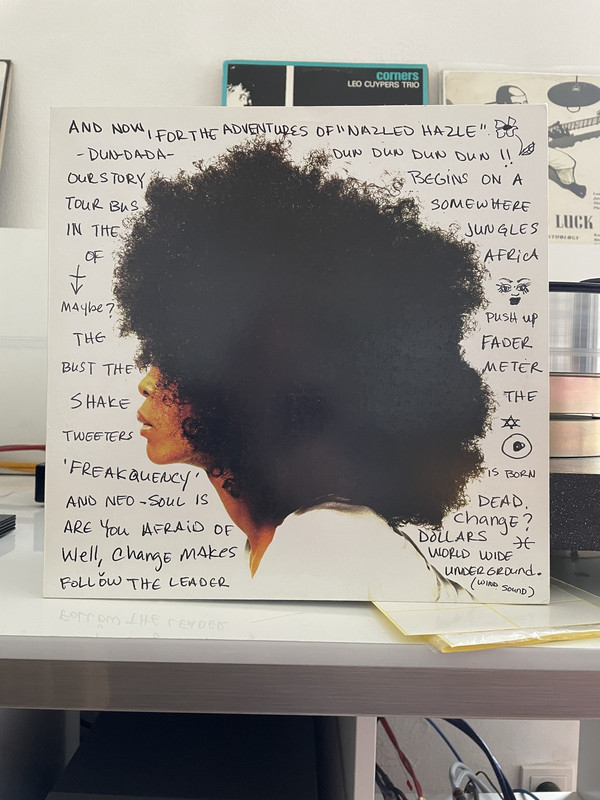 corners
LEO CUYPERS TRIO
AND NOW, FOR THE ADVENTURES OF "NAZLED HAZLE".
-DUN-DADA- DUN DUN DUN DUN !!
OUR STORY BEGINS ON A
TOUR BUS SOMEWHERE
IN THE JUNGLES
OF AFRICA
MAYBE? PUSH UP
THE FADER
BUST THE METER
SHAKE THE
TWEETERS
'FREAKQUENCY' IS BORN
AND NEO-SOUL IS DEAD.
ARE YOU AFRAID OF Change?
Well, Change MAKES DOLLARS
FOLLOW THE LEADER WORLD WIDE
UNDERGROUND.
(WIND SOUND)
LUCK